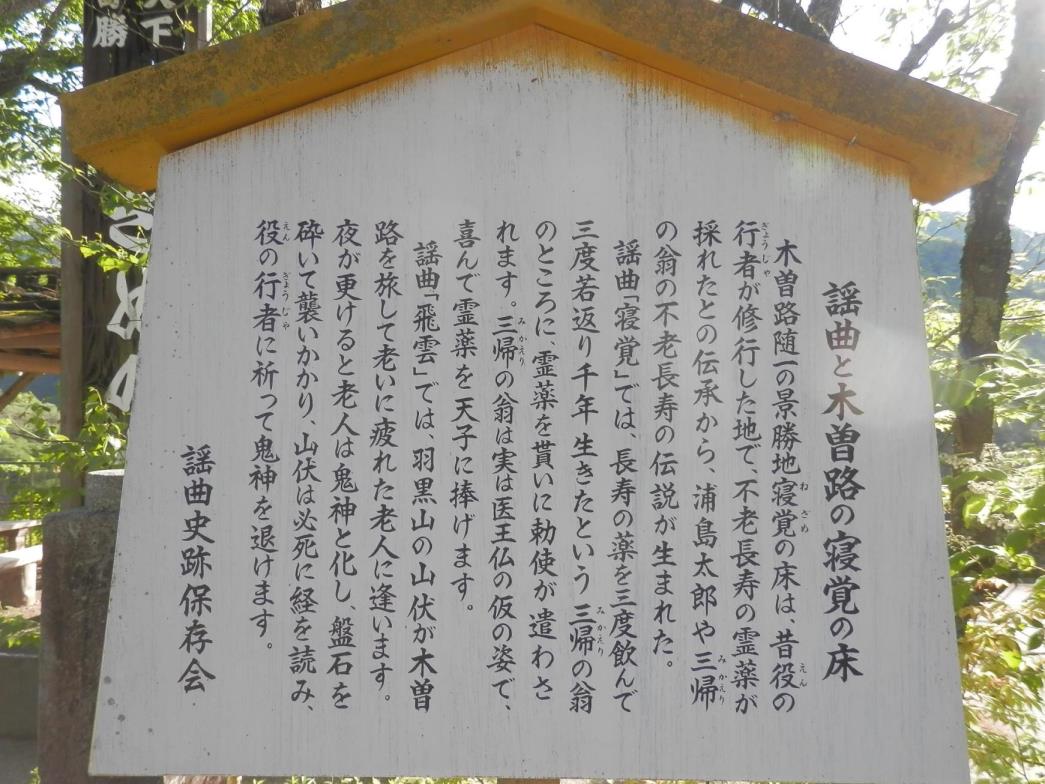 謡曲と木曽路の寝覚の床
木曽路随一の景勝地寝覚の床は、昔役の
行者が修行した地で、不老長寿の霊薬が
採れたとの伝承から、浦島太郎や三帰
の翁の不老長寿の伝説が生まれた。
謡曲「寝覚」では、長寿の薬を三度飲んで
三度若返り千年生きたという三帰の翁
のところに、霊薬を貰いに勅使が遣わさ
れます。三帰の翁は実は医王仏の仮の姿で、
喜んで霊薬を天子に捧げます。
謡曲「飛雲」では、羽黒山の山伏が木曽
路を旅して老いに疲れた老人に逢います。
夜が更けると老人は鬼神と化し、盤石を
砕いて襲いかかり、山伏は必死に経を読み、
役の行者に祈って鬼神を退けます。
謡曲史跡保存会